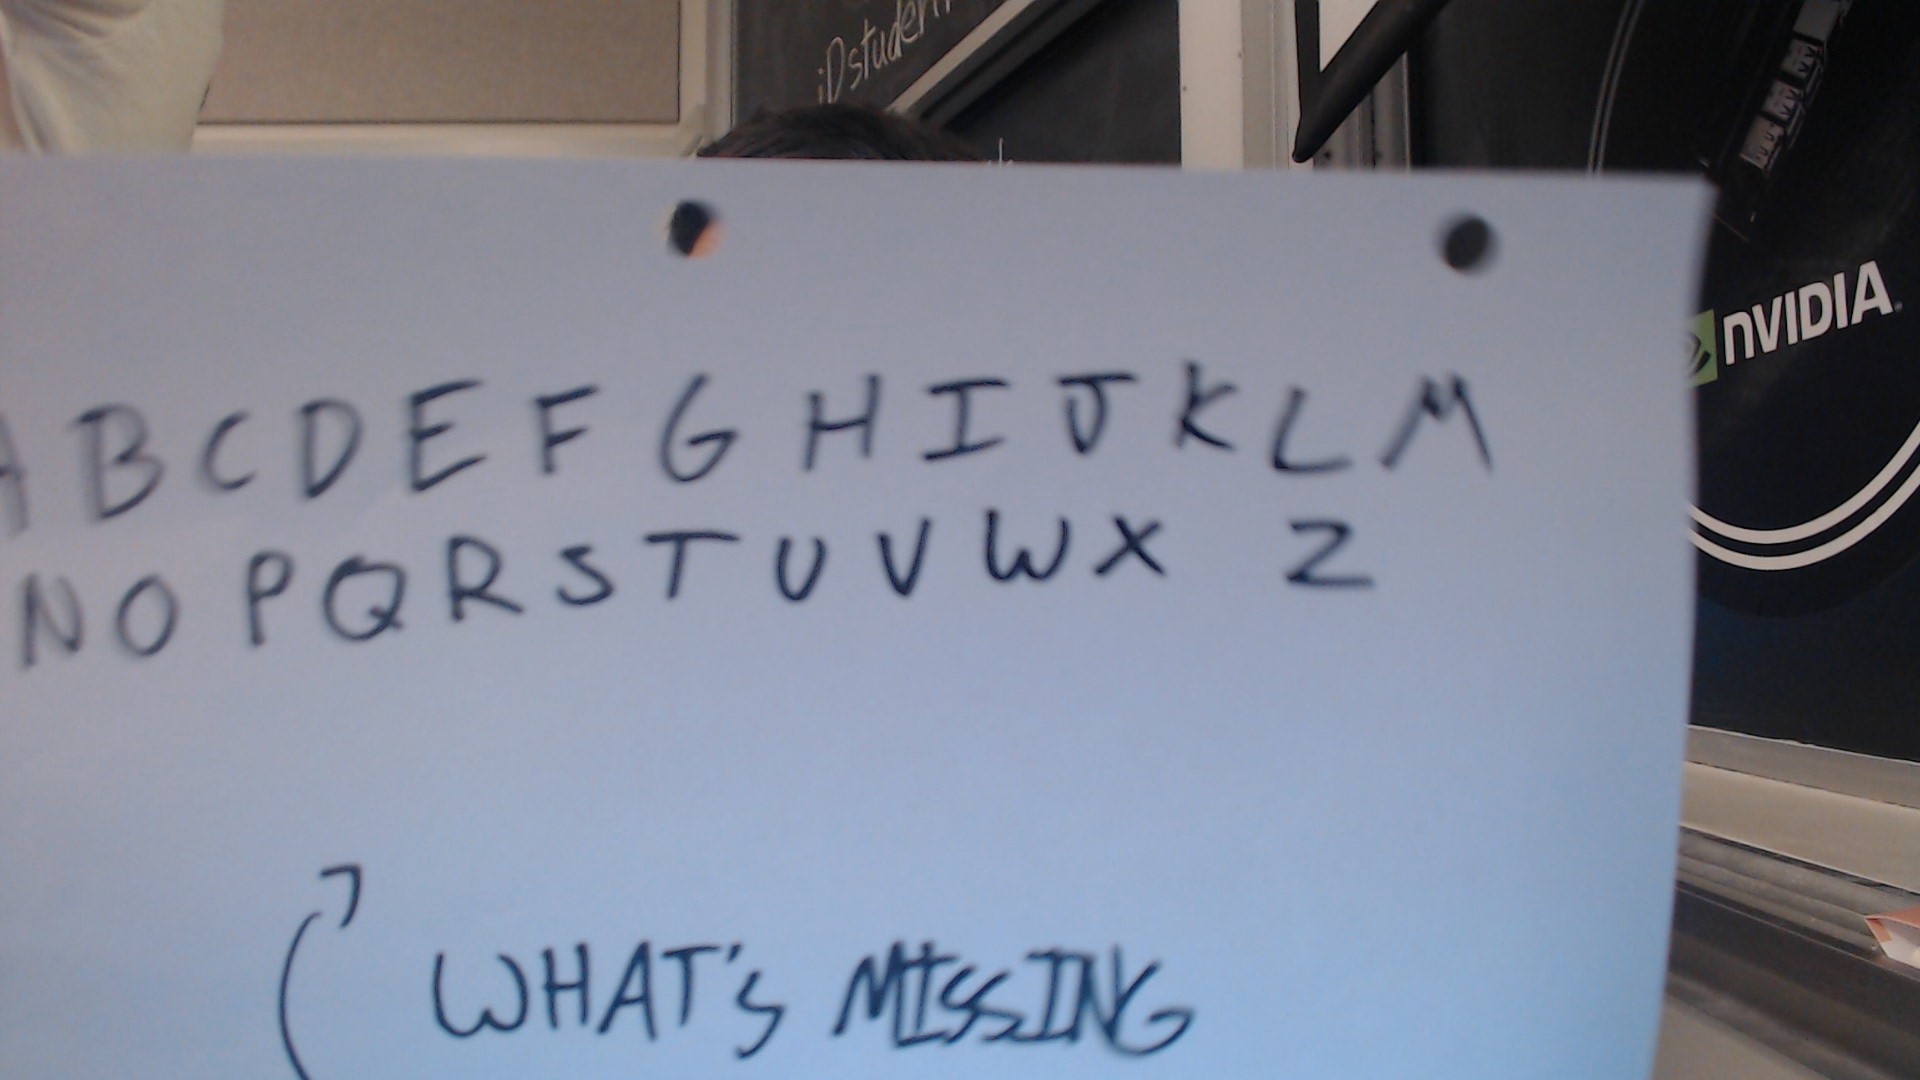 iDstuden
nVIDIA
A B C D E F G H I J K L M
N O P Q R S T U V W X Z
WHAT's MISSING